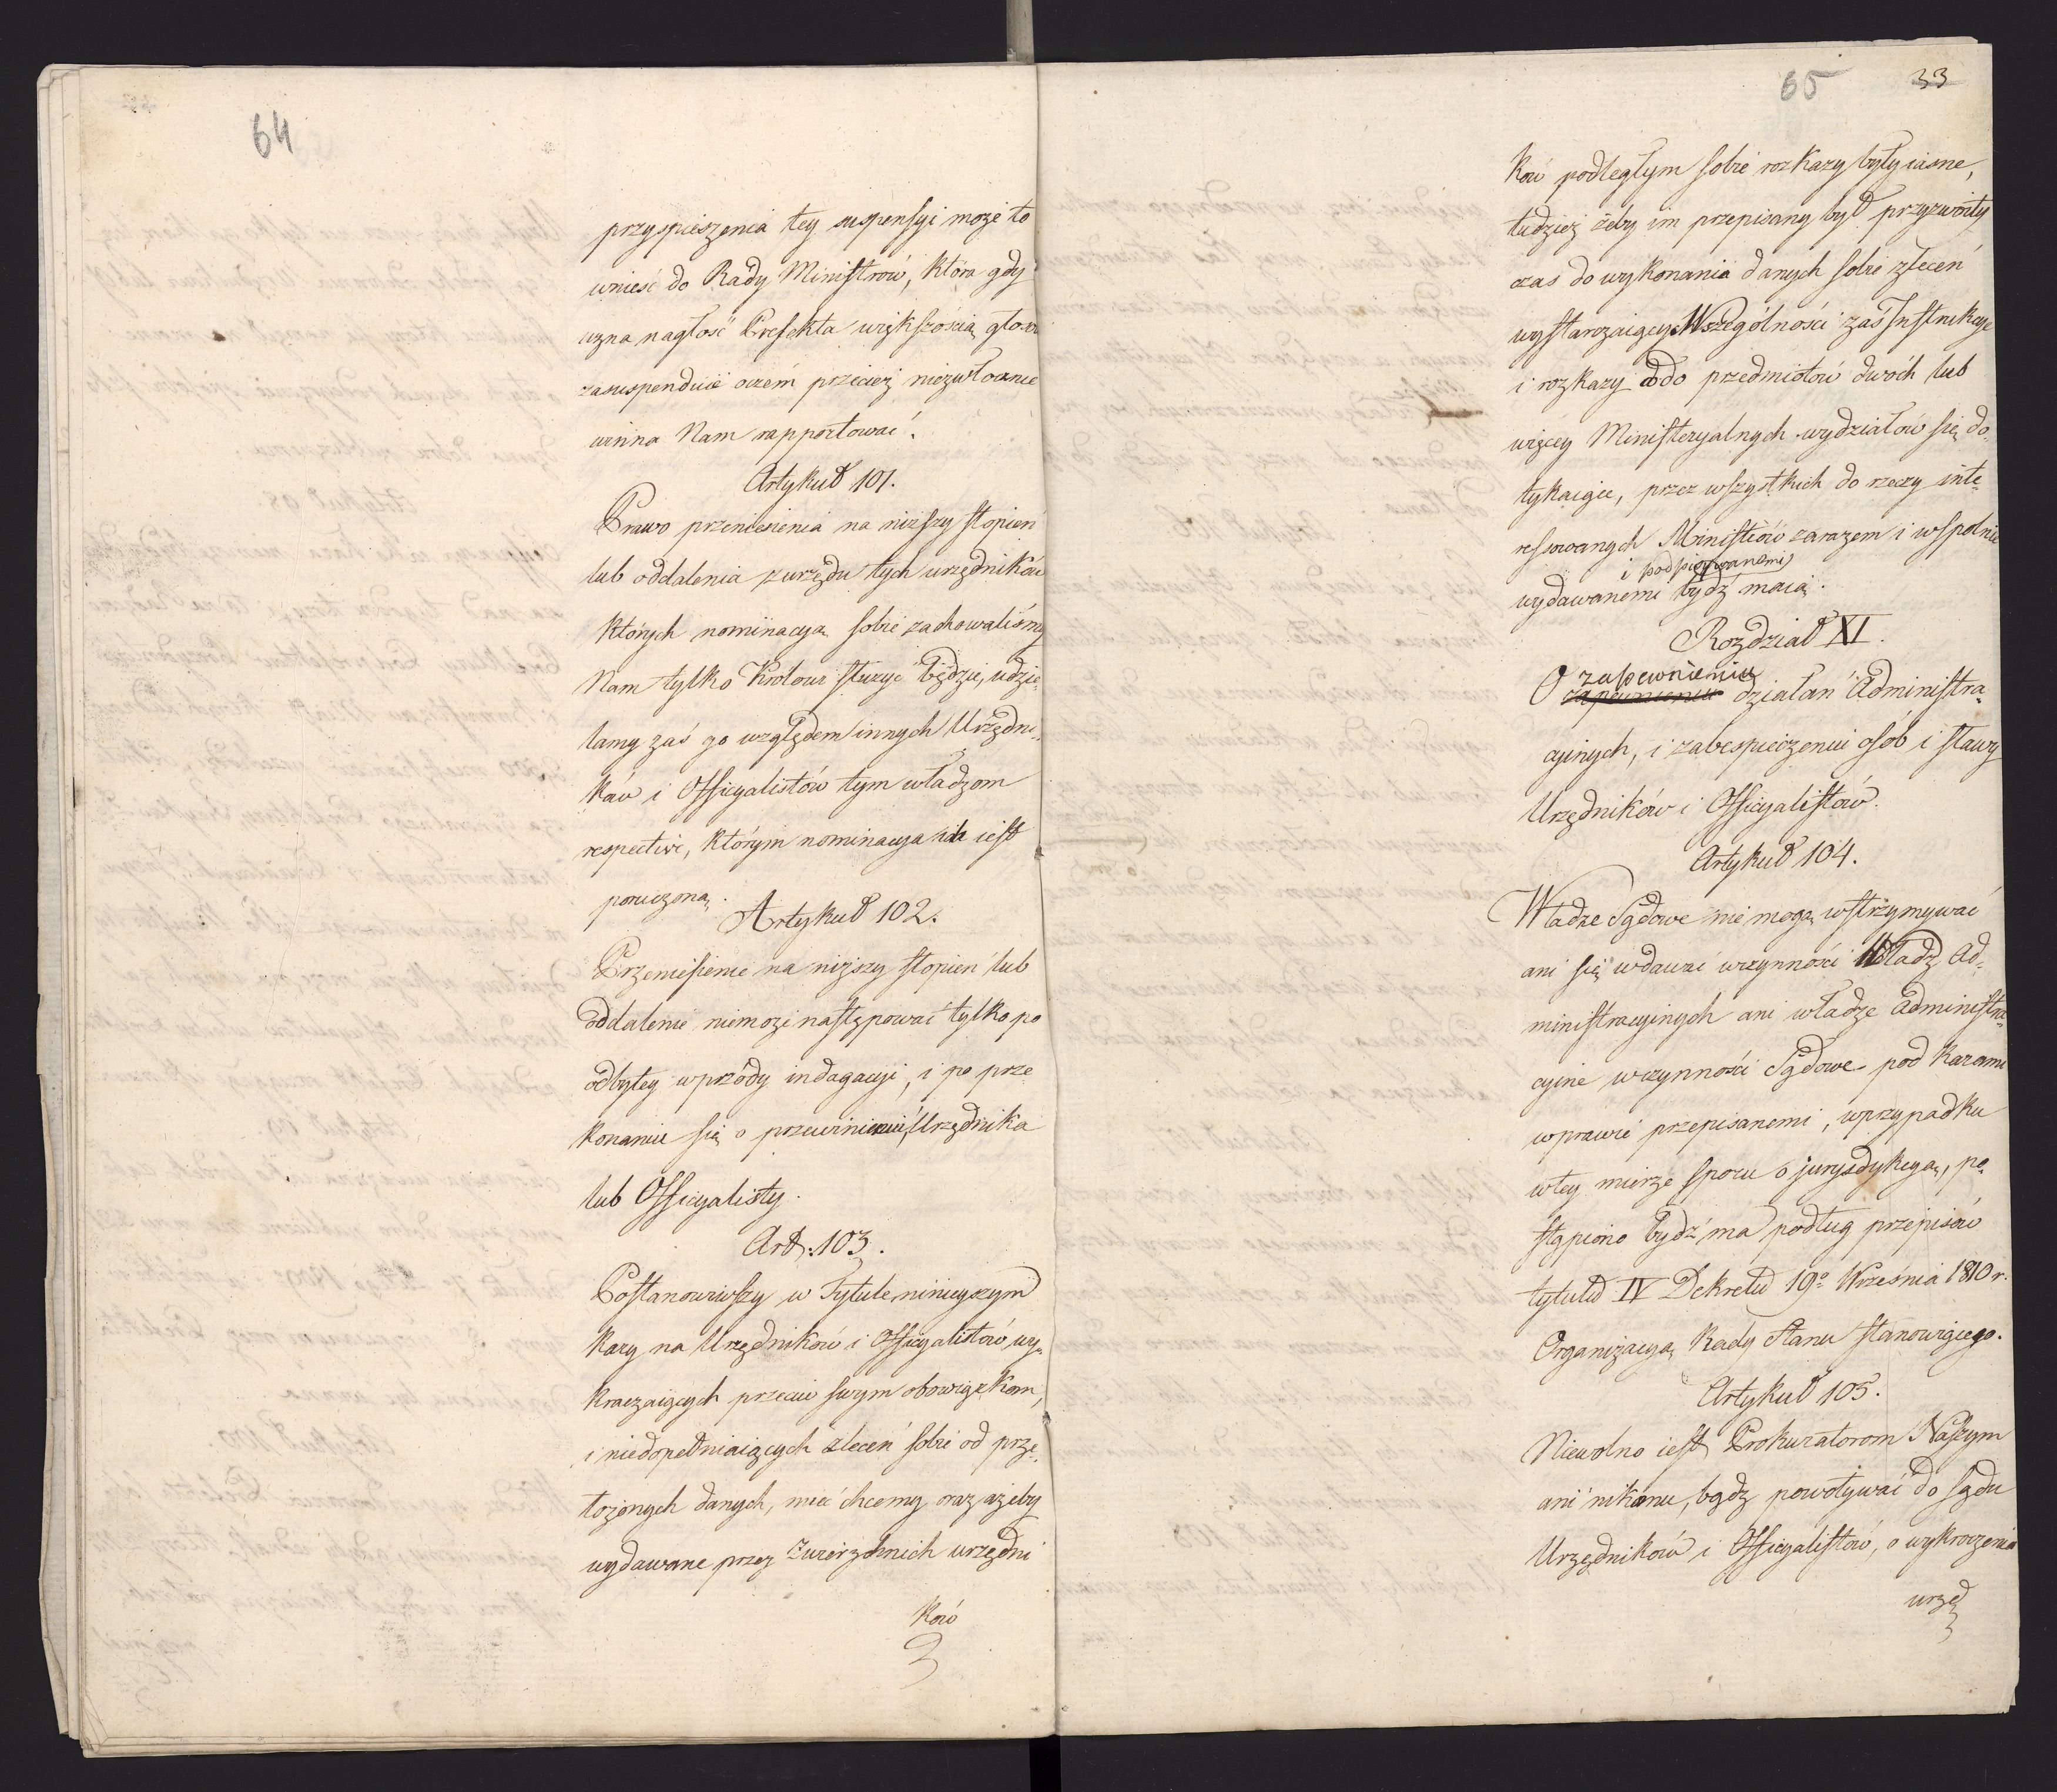 64
przyspieszenia tey suspensyi może to
wnieść do Rady Ministrów, która gdy
uzna nagłość Prefekta większością głosów
zasuspenduie oczém przecież niezwłocznie
winna Nam rapportować.
Artykuł 101.
Prawo przeniesienia na niższy stopień
lub oddalenia z urzędu tych urzędników
których nominacyą sobie zachowaliśmy
Nam tylko Królowi służyć będzie, udzie-
lamy zaś go względem innych Urzędni-
ków i Officyalistów tym władzom
respective, którym nominacya ich iest
poruczoną.
Artykuł 102.
Przeniesienie na niższy stopień lub
oddalenie niemoże następować tylko po
odbytey wprzódy indagacyi, i po prze
konaniu się o przewinieniu Urzędnika
lub Officyalisty.
Art: 103.
Postanowiwszy w Tytule ninieyszym
kary na Urzędników i Officyalistów, wy-
kraczaiących przeciw swym obowiązkom,
i niedopełniaiących zleceń sobie od prze-
łożonych danych, mieć chcemy oraz ażeby
wydawane przez zwierzchnich urzędni
ków
65
33
ków podległym sobie rozkazy były iasne,
tudzież żeby im przepisany był przyzwoity
czas do wykonania danych sobie zleceń
wystarczaiący. Wszególności zaś Instrukcye
i rozkazy do przedmiotów dwóch lub
więcey Ministeryalnych wydziałów się do-
tykaiące, przez wszystkich do rzeczy inte-
ressowanych Ministrów zarazem i wspolnie
i podpisywanemi
wydawanemi bydź maią.
Rozdział XI.
zapewnieniu
O zapewnieniu działań Administra-
cyinych, i zabespieczeniu osób i sławy
Urzędników i Officyalistów.
Artykuł 104.
Władze Sądowe nie mogą wstrzymywać
ani się wdawać wczynności Władz Ad-
ministracyinych ani władze Administra-
cyine wczynności Sądowe pod karami
wprawie przepisanemi, wprzypadku
wtey mierze sporu o jurysdykcyą, po-
stąpiono bydź ma podług przepisów
tytułu IV Dekretu 19º Września 1810 r.
Organizacyą Rady Stanu stanowiącego.
Artykuł 105.
Niewolno iest Prokuratorom Naszym
ani nikomu, bądź powoływać do sądu
Urzędników i Officyalistów, o wykroczenia
urzęd